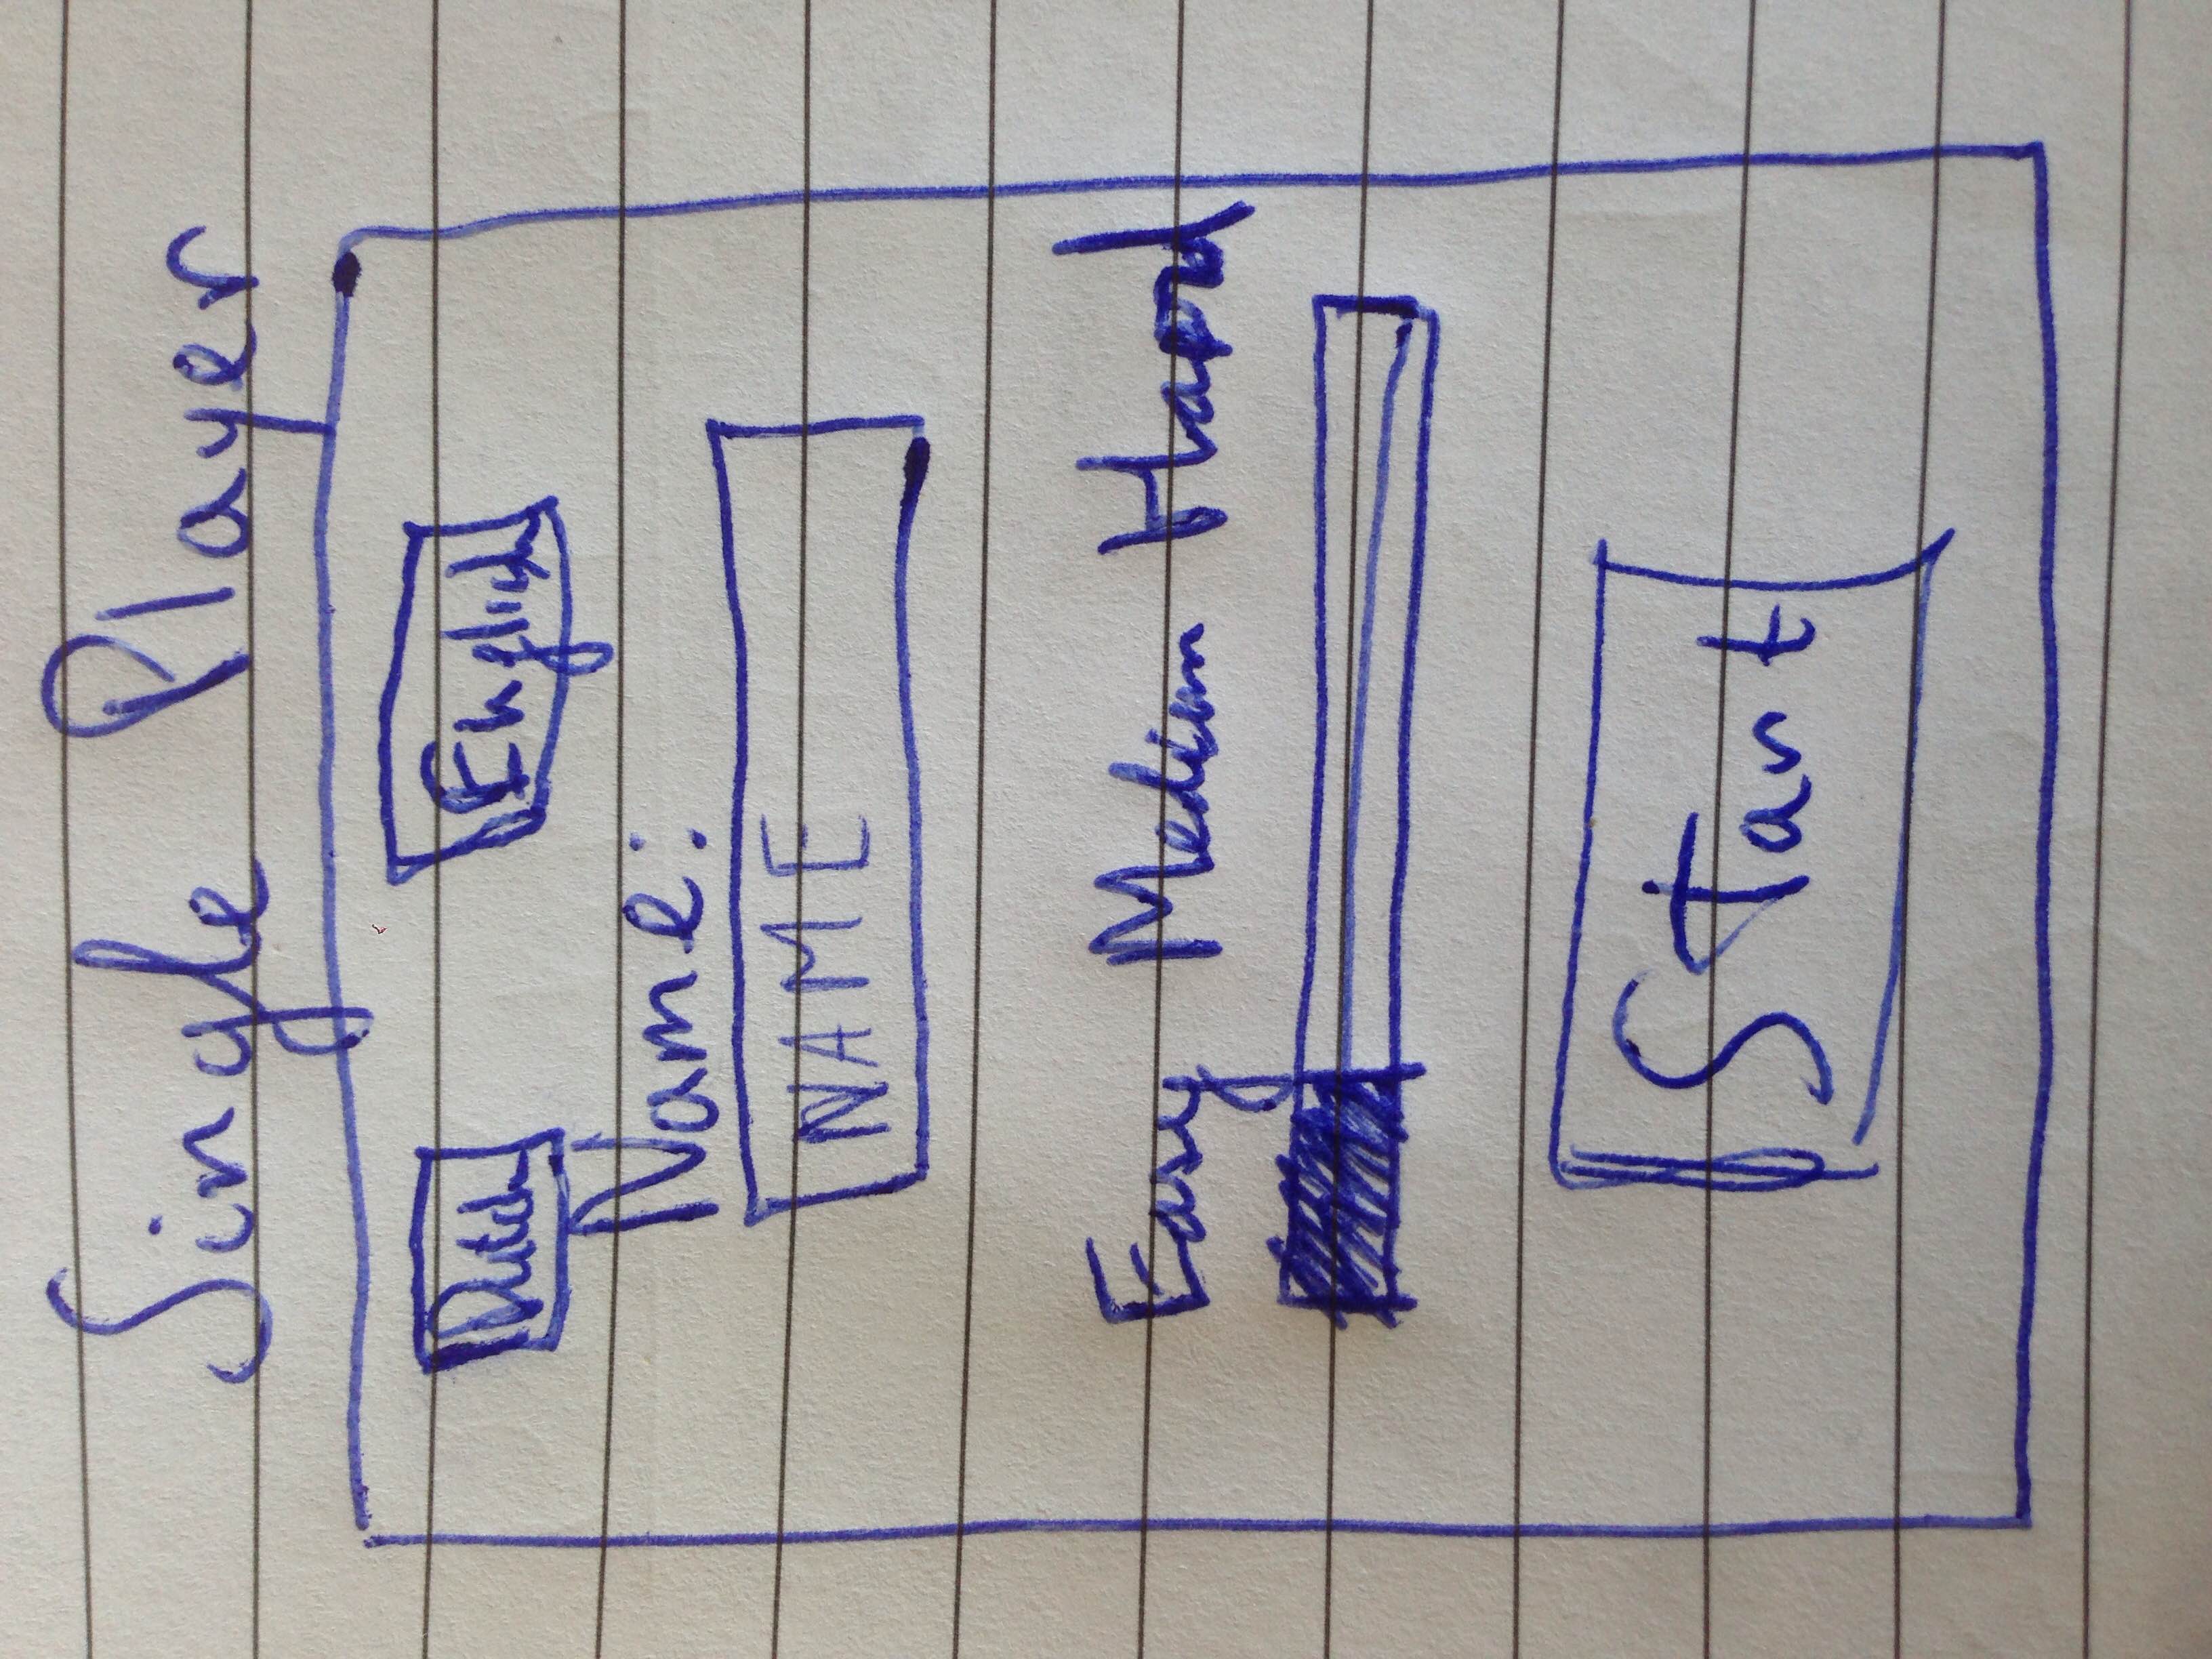 Single Player
Dutch English
Name:
NAME
Easy Medium Hard
Start